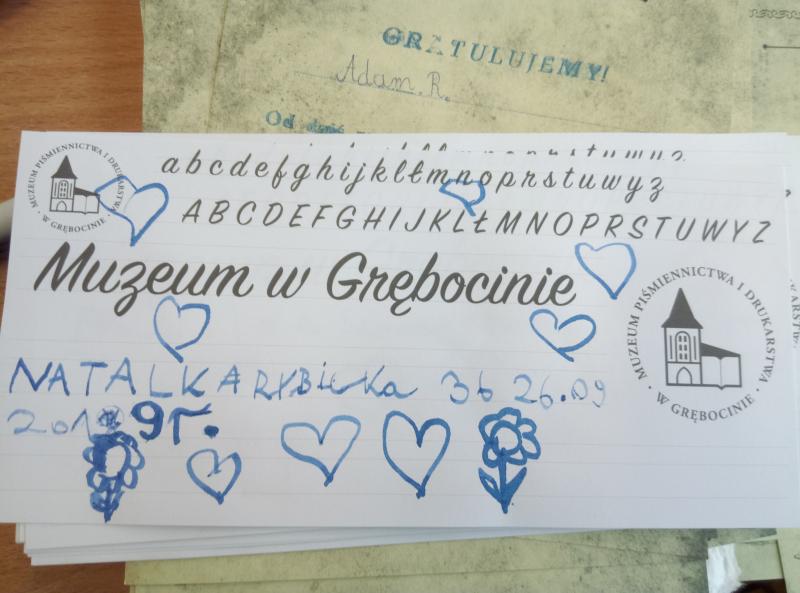 GRATULUJEMY!
Adam. R.
Od
MUZEUM PIŚMIENNICTWA I DRUKARSTWA
• W GRĘBOCINIE •
abcdefghijklłmnoprstuwyz
ABCDEFGHIJKLŁMNOPRSTUWYZ
Muzeum w Grębocinie
MUZEUM PIŚMIENNICTWA I DRUKARSTWA
• W GRĘBOCINIE •
NATALKA RYBICKA 3b 26.09
2019r.